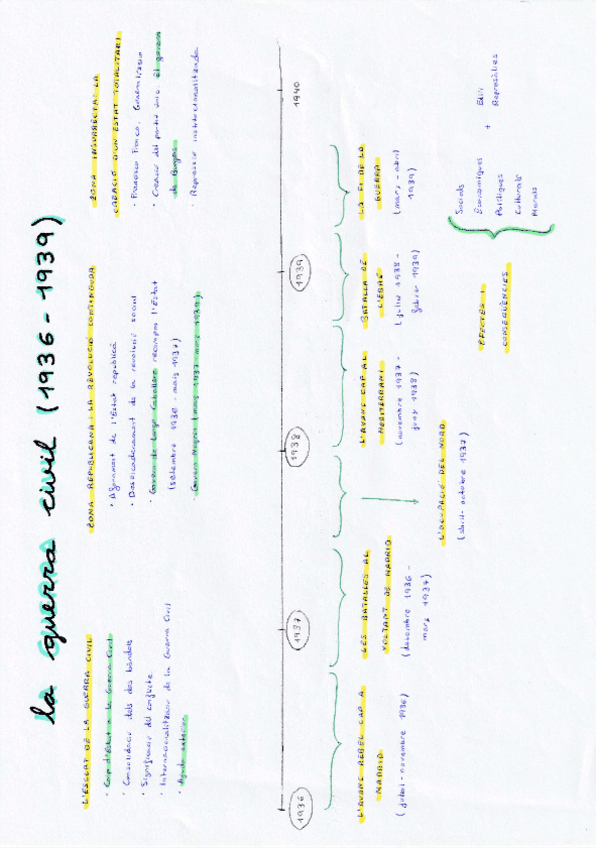 la guerra civil (1936 - 1939)
L'ESCLAT DE LA GUERRA CIVIL
· Cop d'Estat a la Guerra Civil
· Consolidació dels dos bàndols
· Significació del conflicte
· Internacionalització de la Guerra Civil
· Ajuda exterior
ZONA REPUBLICANA I LA REVOLUCIÓ
· Afonament de l'Estat republicà
· Desencadenament de la revolució social
· Govern de Largo Caballero recompos l'Estat
(setembre 1936 - maig 1937)
· Govern Negrín (maig 1937 - març 1939)
ZONA INSURRECTA: LA
CREACIÓ D'UN ESTAT TOTALITARI
· Francisco Franco, Generalísimo
· Creació del partit únic: el govern
de Burgos
· Repressió institucionalitzada
1936
1937
1938
1939
1940
L'AVANÇ REBEL CAP A
MADRID
(juliol - novembre 1936)
LES BATALLES AL
VOLTANT DE MADRID
(desembre 1936 -
març 1937)
L'OCUPACIÓ DEL NORD
(abril - octubre 1937)
L'AVANÇ CAP AL
MEDITERRANI
(novembre 1937 -
juny 1938)
BATALLA DE
L'EBRE
(juliol 1938 -
febrer 1939)
LA FI DE LA
GUERRA
(març - abril
1939)
EFECTES I
CONSEQÜÈNCIES
Socials
Econòmiques
Polítiques
Culturals
Morals
+
Exili
Represàlies